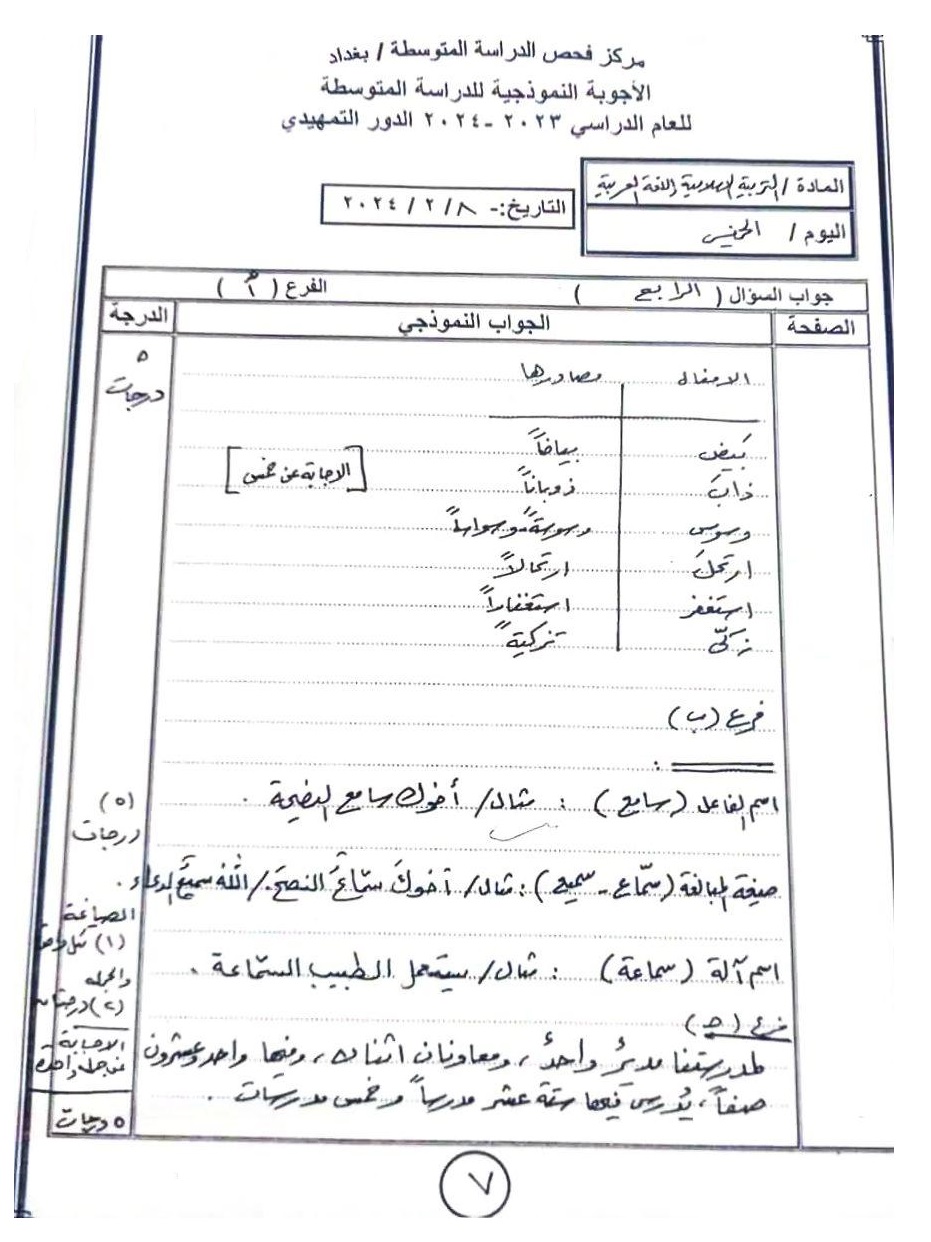 مركز فحص الدراسة المتوسطة / بغداد
الأجوبة النموذجية للدراسة المتوسطة
للعام الدراسي ٢٠٢٣ -٢٠٢٤ الدور التمهيدي
المادة / التربية الاسلامية واللغة العربية
اليوم / الخميس
التاريخ:- ٨ / ٢ / ٢٠٢٤
جواب السؤال ( الرابع ) الفرع ( أ )
الصفحة الجواب النموذجي الدرجة
الافعال مصادرها
٥ درجات
بَيض بياضاً
ذابَ ذوباناً
[الاجابة عن خمس]
وسوس وسوسةً وسواساً
ارتحلَ ارتحالاً
استغفر استغفاراً
زكّى تزكيةً
فرع (ب)
اسم الفاعل (سامع) : مثال/ أخوك سامع النصيحة .
(٥) درجات
صيغة المبالغة (سمّاع - سميع) : مثال/ أخوكَ سمّاعٌ النصحَ . / اللهُ سميعٌ الدعاء .
اسم آلة (سماعة) : مثال/ يستعمل الطبيب السمّاعة .
الصياغة
(١)
(٢) درجتان
الاجابة
عن جملة واحدة
فرع (جـ)
لمدرستنا مديرٌ واحدٌ ، ومعاونان اثنان ، وفيها واحد وعشرون
صفاً ، يُدرس فيها ستة عشر مدرساً وخمس مدرسات .
٥ درجات
٧